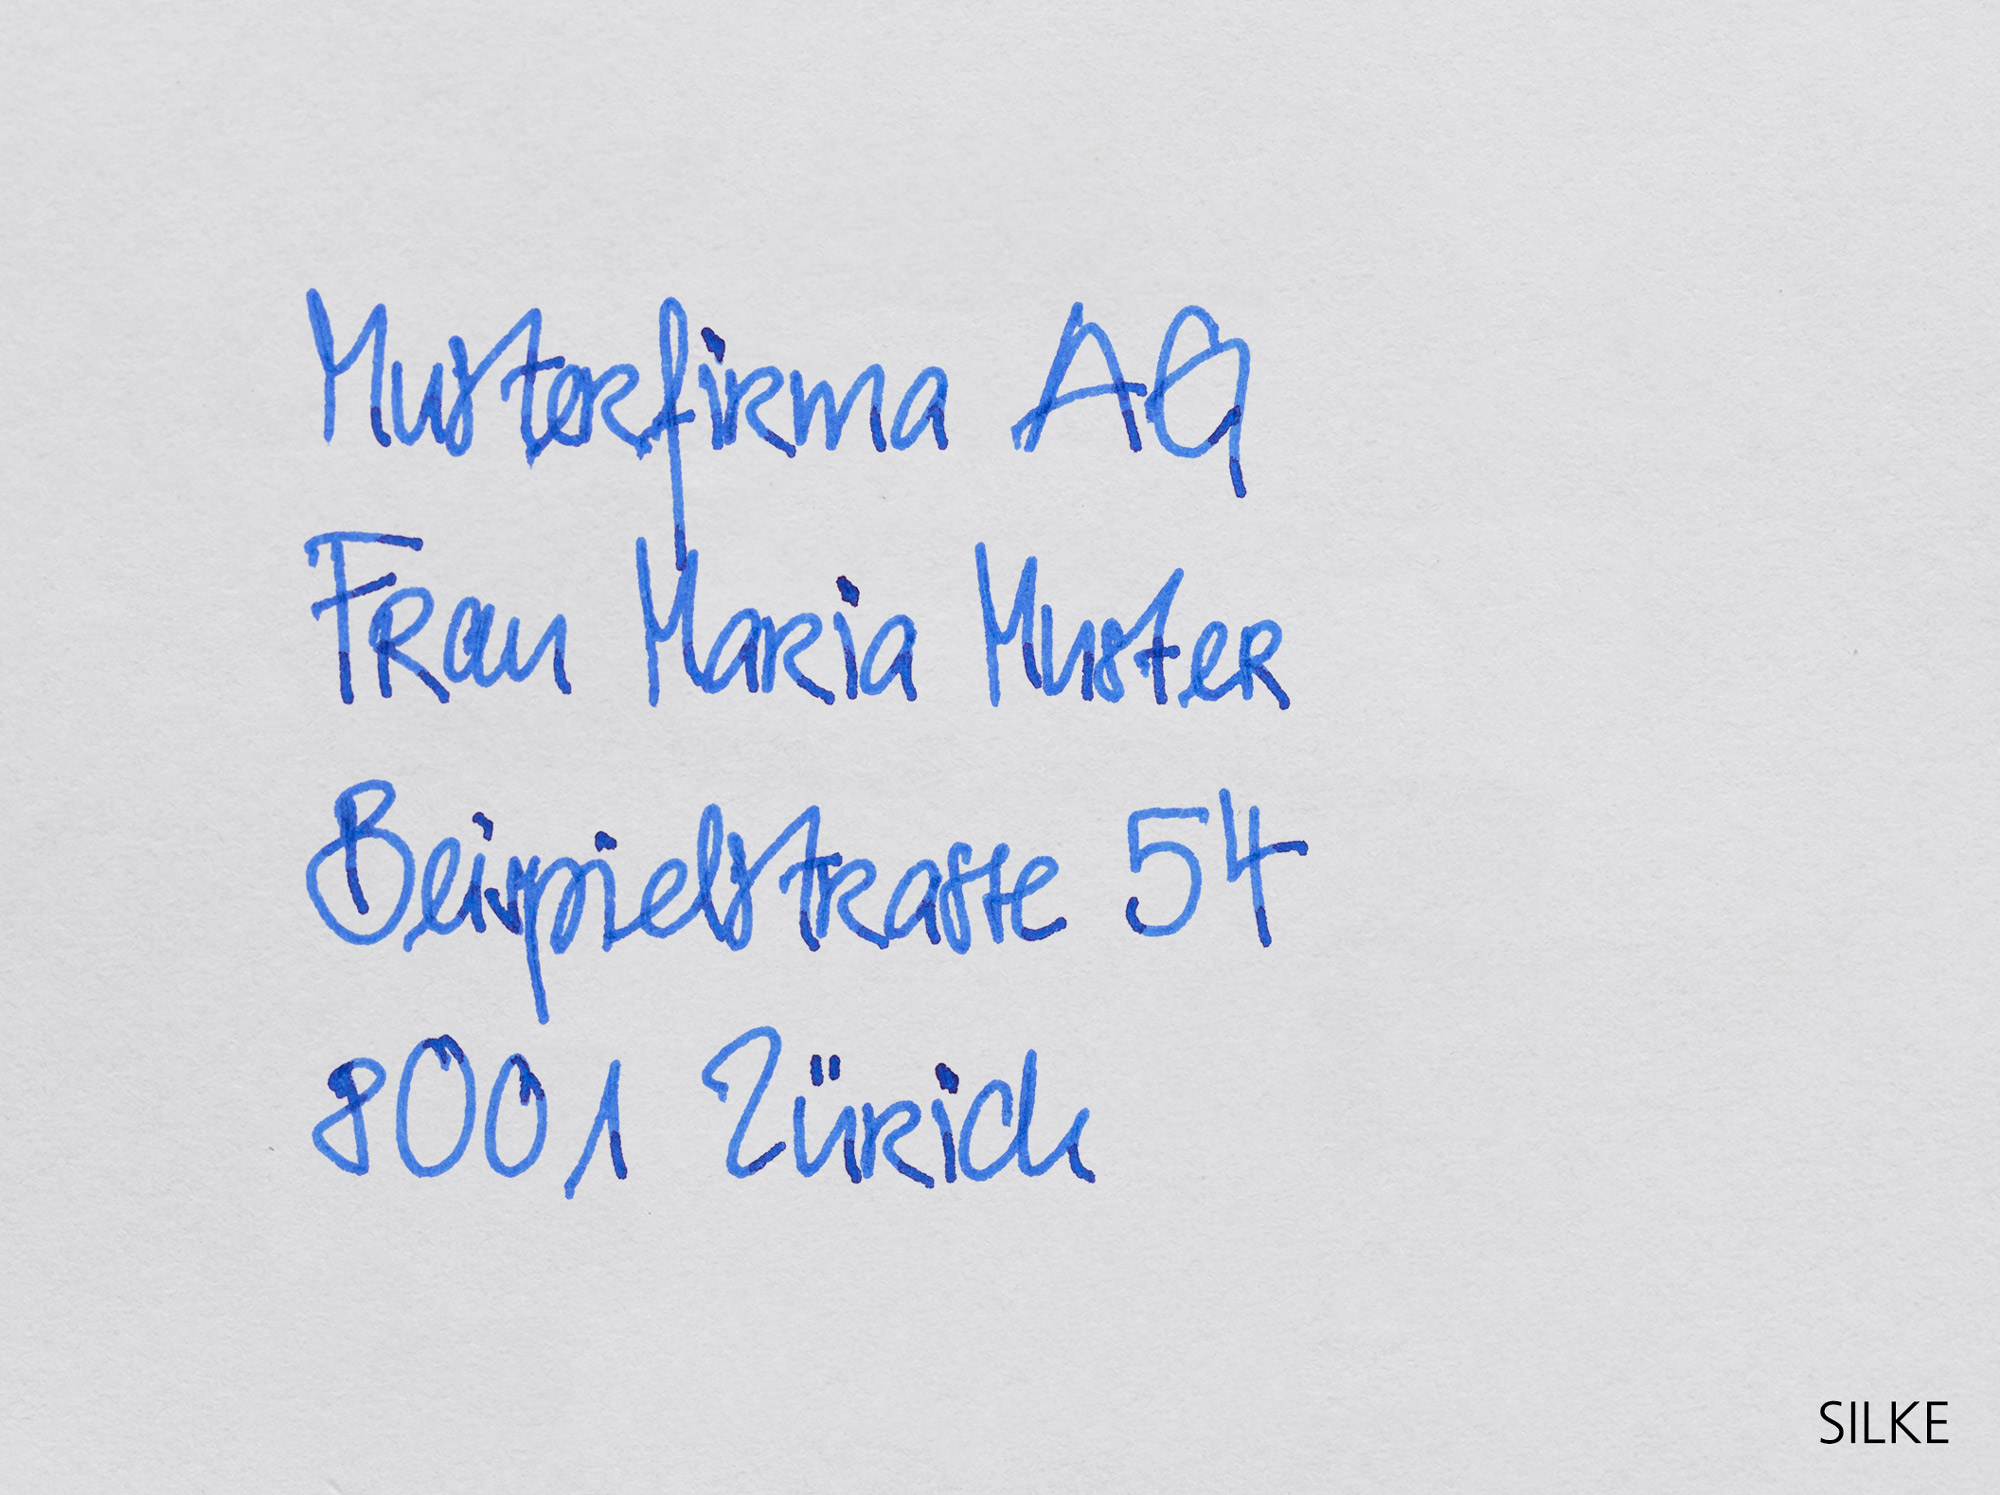 Musterfirma AG
Frau Maria Muster
Beispielstrasse 54
8001 Zürich
SILKE